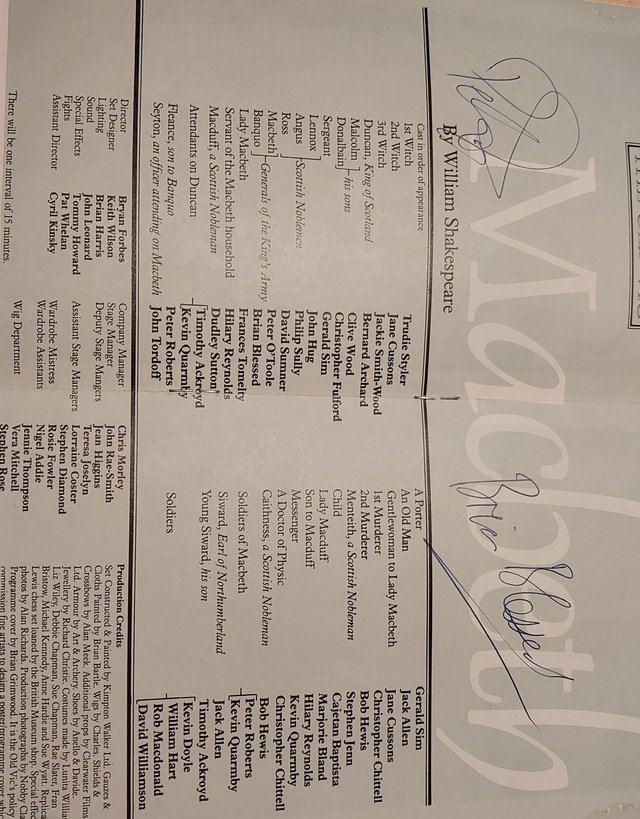 Macbeth
Brian Blessed
By William Shakespeare
Cast in order of appearance
1st Witch Trudie Styler
2nd Witch Jane Cussons
3rd Witch Jackie Smith-Wood
Duncan, King of Scotland Bernard Archard
Malcolm Clive Wood
Donalbain his sons Christopher Fulford
Sergeant Gerald Sim
Lennox John Hug
Angus Scottish Noblemen Philip Sully
Ross David Sumner
Macbeth Peter O'Toole
Banquo Generals of the King's Army Brian Blessed
Lady Macbeth Frances Tomelty
Servant of the Macbeth household Hilary Reynolds
Macduff, a Scottish Nobleman Dudley Sutton
Attendants on Duncan Timothy Ackroyd
Kevin Quarmby
Fleance, son to Banquo Peter Roberts
Seyton, an officer attending on Macbeth John Tordoff
A Porter Gerald Sim
An Old Man Jack Allen
Gentlewoman to Lady Macbeth Jane Cussons
1st Murderer Christopher Chittell
2nd Murderer Bob Hewis
Menteith, a Scottish Nobleman Stephen Jenn
Child Cajetan Baptista
Lady Macduff Marjorie Bland
Son to Macduff Hilary Reynolds
Messenger Kevin Quarmby
A Doctor of Physic Christopher Chittell
Caithness, a Scottish Nobleman Bob Hewis
Soldiers of Macbeth Peter Roberts
Kevin Quarmby
Siward, Earl of Northumberland Jack Allen
Young Siward, his son Timothy Ackroyd
Soldiers Kevin Doyle
William Hart
Rob Macdonald
David Williamson
Director Bryan Forbes
Set Designer Keith Wilson
Lighting Brian Harris
Sound John Leonard
Special Effects Tommy Howard
Fights Pat Whelan
Assistant Director Cyril Kinsky
There will be one interval of 15 minutes.
Company Manager Chris Morley
Stage Manager John Rae-Smith
Deputy Stage Mangers Jean Higgins
Teresa Joselyn
Assistant Stage Managers Lorraine Coster
Stephen Diamond
Wardrobe Mistress Rosie Fowler
Wardrobe Assistants Nigel Addie
Jennie Thompson
Wig Department Vera Mitchell
Stephen Rose
Production Credits
Set Constructed & Painted by Kimpton Walker Ltd. Gauzes &
Cloths Painted by Brian Bartle. Wigs by Charles. Shields &
Crossbows by Alan Meek. Additional props by Clearwater Films
Ltd. Armour by Art & Archery. Shoes by Anello & Davide.
Jewellery by Richard Christie. Costumes made by Lunita
Liz Wiley, Debbie Chapman, Sue Chapman, Rae Slater, Fran
Bristow, Michael Kennedy, Anne Hardie and Sue Wyatt.
Lewis chess set loaned by the British Museum shop. Special
photos by Alan Richards. Production photographs by Nobby
Programme cover by Brian Grimwood. It is the Old Vic's policy
commission fine artists to design a poster/programme cover